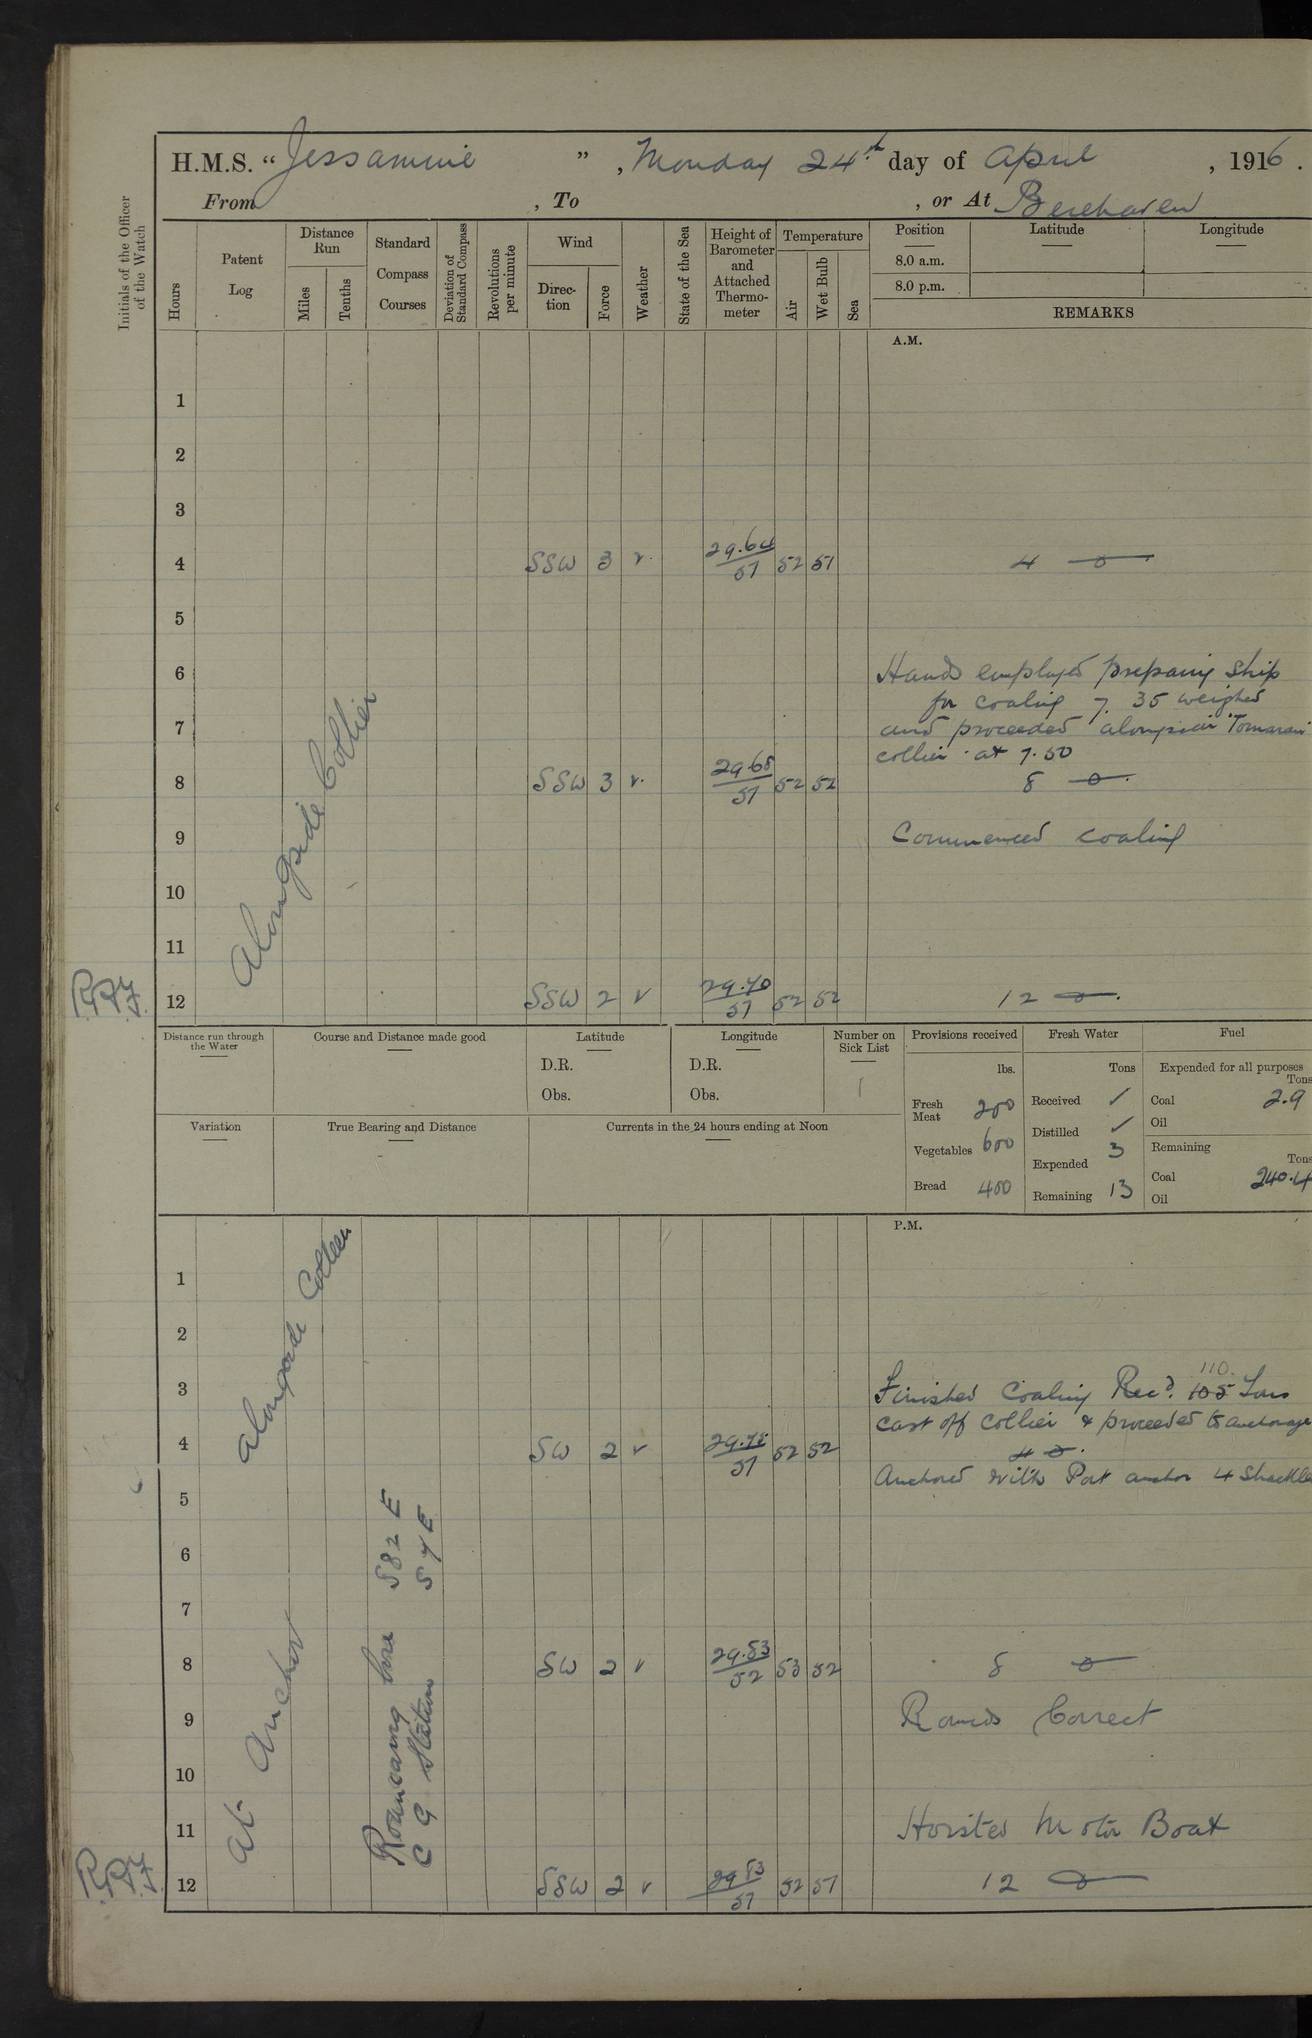 H.M.S. “Jessamine” , Monday 24th day of April , 1916.
From , To , or At Berehaven
Initials of the Officer of the Watch
Hours
Patent Log
Distance Run
Miles
Tenths
Standard Compass Courses
Deviation of Standard Compass
Revolutions per minute
Wind
Direc-tion
Force
Weather
State of the Sea
Height of Barometer and Attached Thermo-meter
Temperature
Air
Wet Bulb
Sea
Position
Latitude
Longitude
8.0 a.m.
8.0 p.m.
REMARKS
A.M.
1
2
3
4 SSW 3 v. 29.64/51 52 51 4
5
6 Hands employed preparing Ship
for coaling 7.35 weighed
7 and proceeded alongside
collier at 7.50
8 SSW 3 v. 29.68/51 52 52 8
9 Commenced coaling
10
11
Alongside Collier
12 SSW 2 v 29.70/51 52 52 12
Distance run through the Water
Course and Distance made good
Latitude
Longitude
Number on Sick List
Provisions received
Fresh Water
Fuel
D.R.
D.R.
1
lbs.
Tons
Expended for all purposes
Tons
Obs.
Obs.
Fresh Meat 200
Received ✓
Coal 2.9
Oil
Variation
True Bearing and Distance
Currents in the 24 hours ending at Noon
Distilled ✓
Vegetables 600
Expended 3
Remaining
Tons
Bread 400
Remaining 13
Coal 240.4
Oil
P.M.
1
2
alongside Collier
3 Finished Coaling Recd. 105 110. Tons
cast off collier & proceeded to anchorage
4 SW 2 v 51 52 52 4
Anchored with Port anchor 4 Shackles
5
6
7
8 SW 2 v 29.83/52 53 52 8
9 Rounds Correct
10
11 Hoisted Motor Boat
12 SSW 2 v 29 83/51 52 51 12
At Anchor
S82E
C G Station S7E